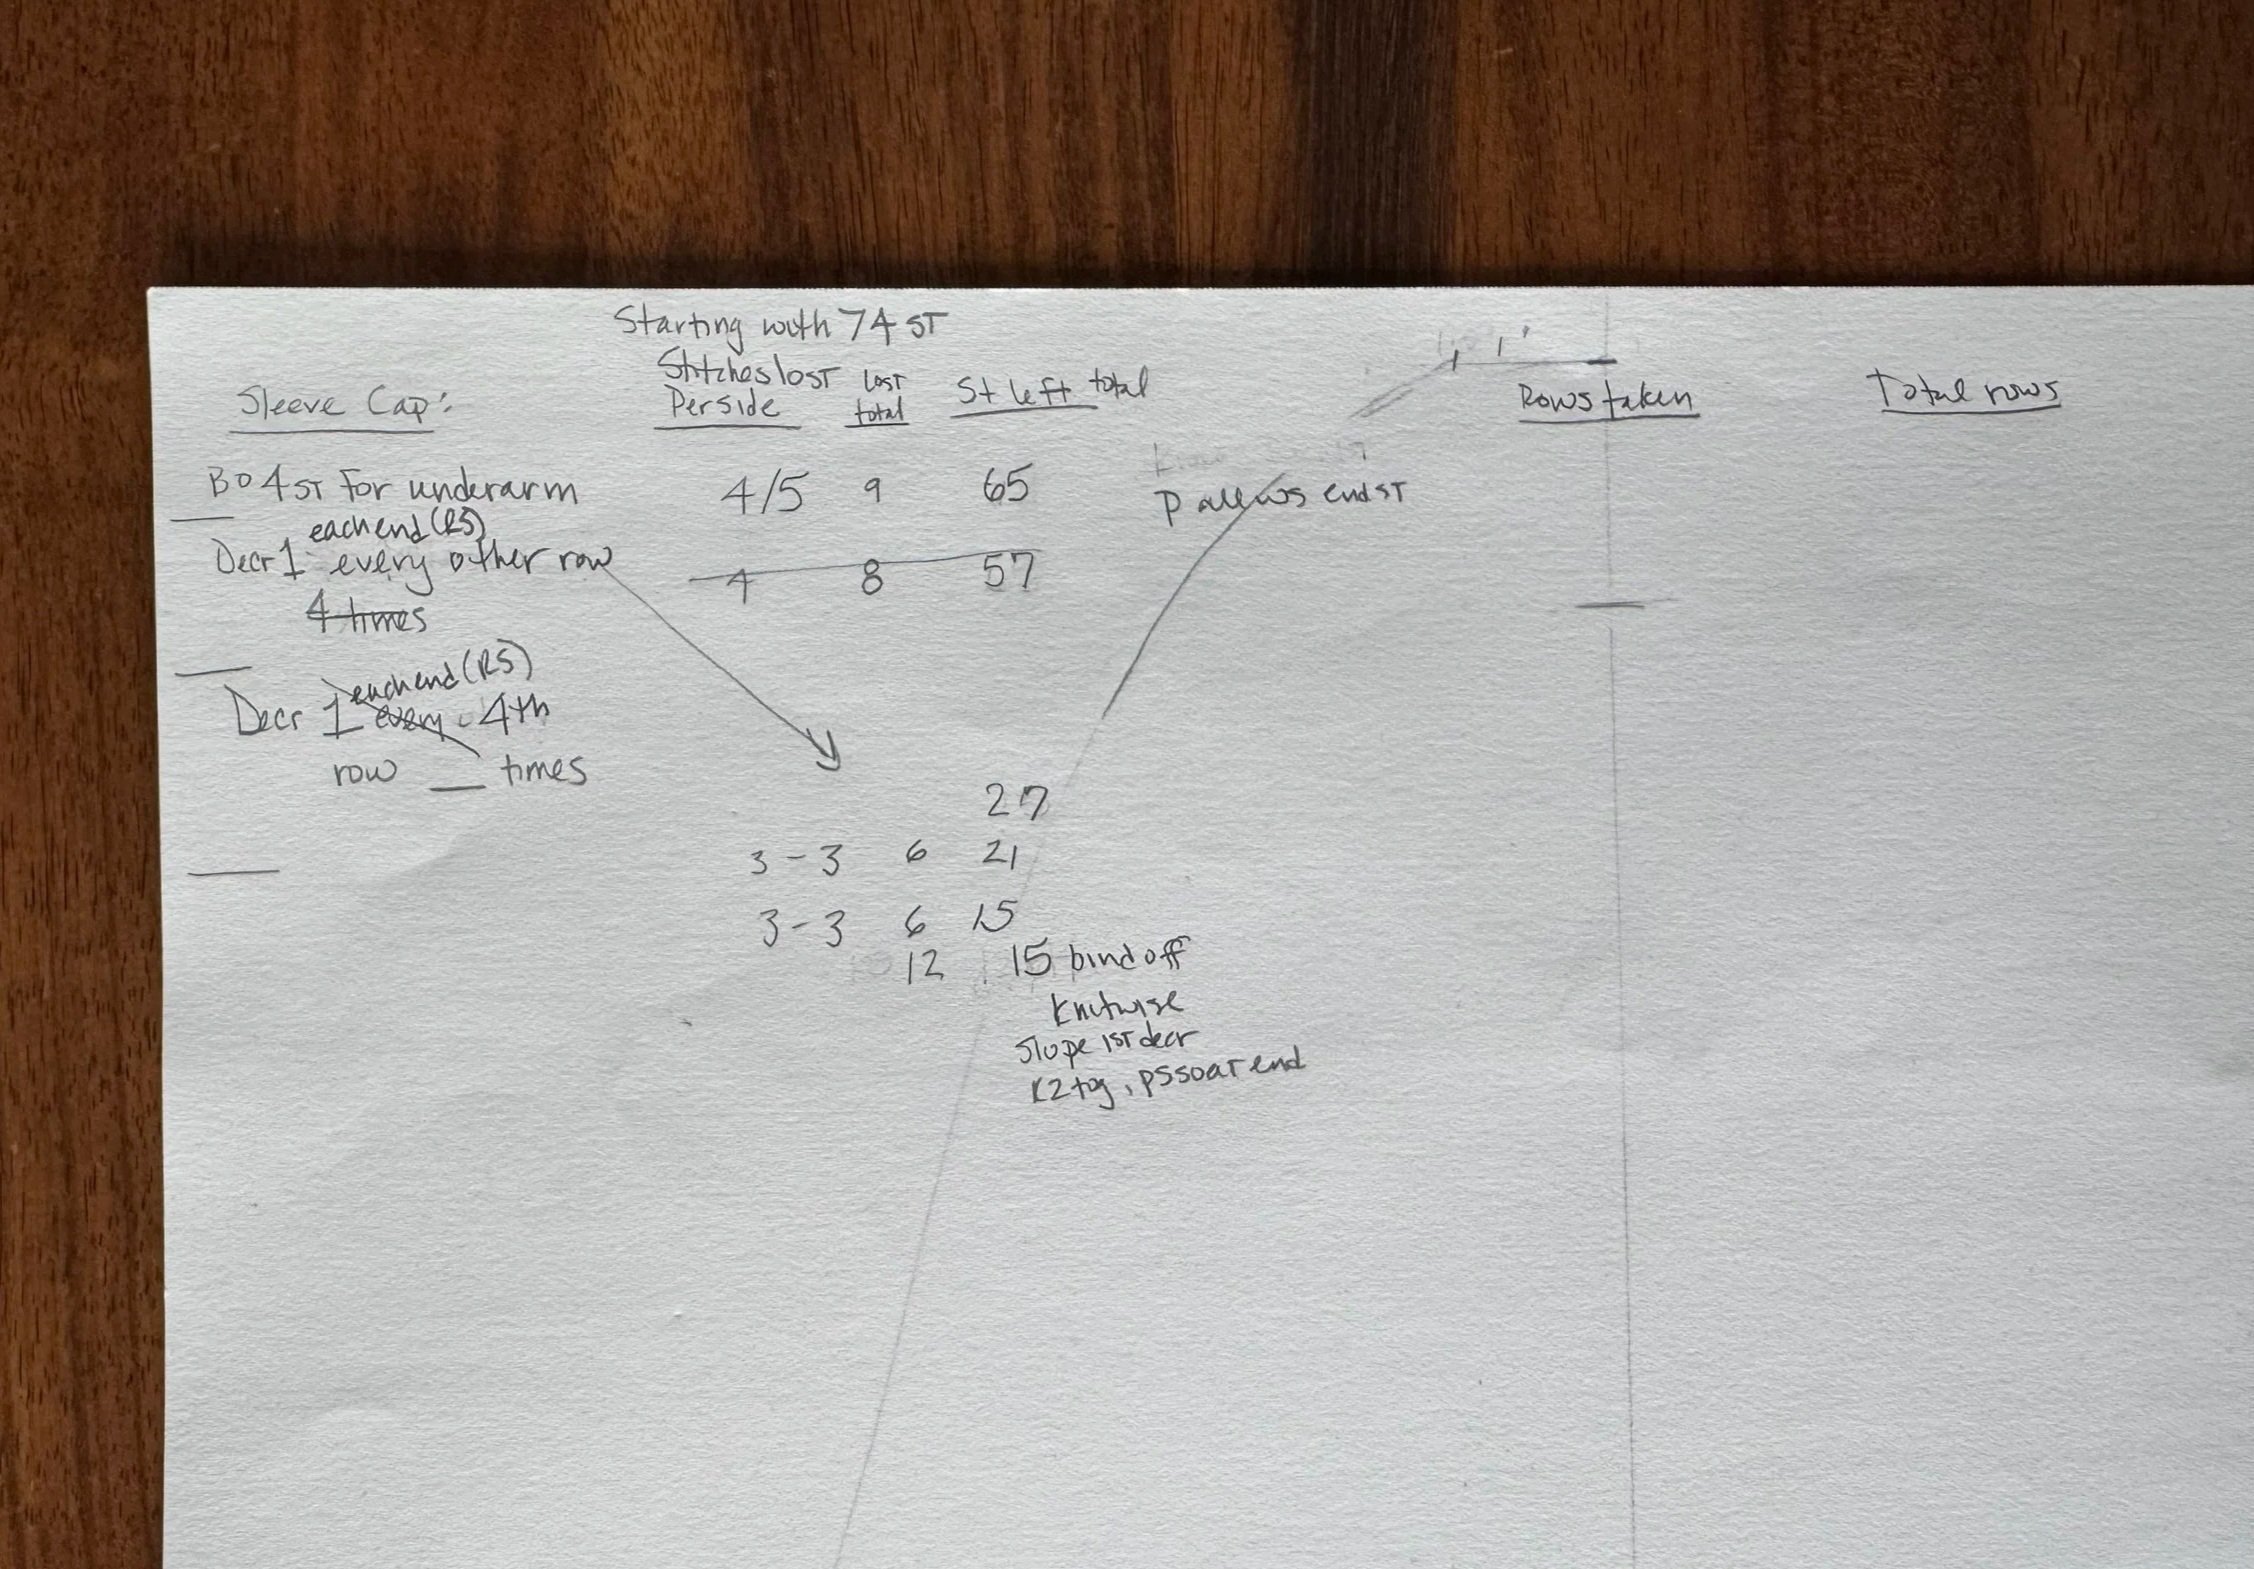 Starting with 74 ST
Sleeve Cap:
Stitches lost Per side
Lost total
St left total
Rows taken
Total rows
BO 4 ST For underarm
4/5 9 65
P all WS end ST
each end (RS)
Decr 1 every other row
4 8 57
4 times
each end (RS)
Decr 1 every 4th
row __ times
27
3-3 6 21
3-3 6 15
12 15 bind off
knitwise
Slope 1ST decr
K2tog, psso at end